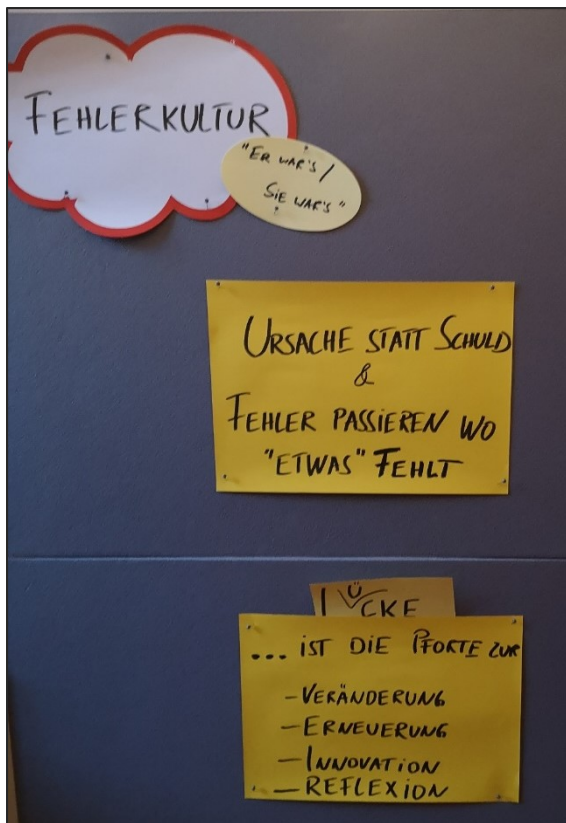 FEHLERKULTUR
"ER WAR'S /
SIE WAR'S"
URSACHE STATT SCHULD
&
FEHLER PASSIEREN WO
"ETWAS" FEHLT
LÜCKE
... IST DIE PFORTE ZUR
- VERÄNDERUNG
- ERNEUERUNG
- INNOVATION
- REFLEXION